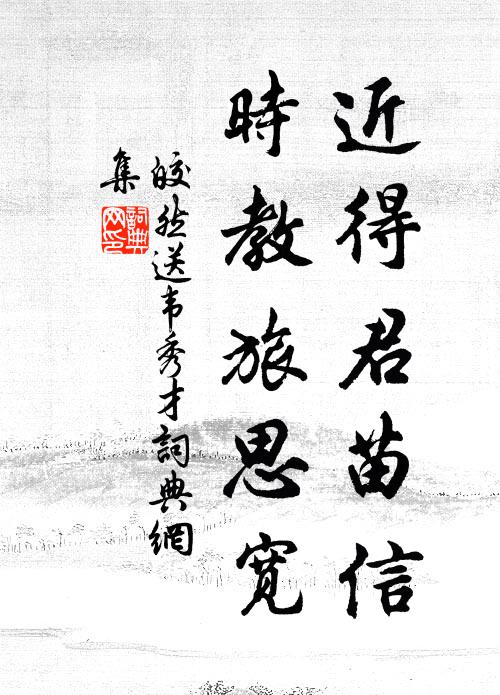 近得君苗信
時教旅思寬
皎然送韦秀才詞典網
集
詞典
网印